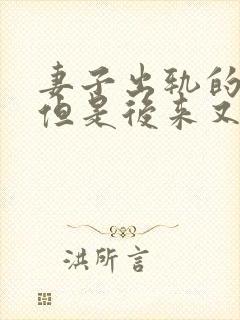 妻子出轨的
但是後来又
洪所言